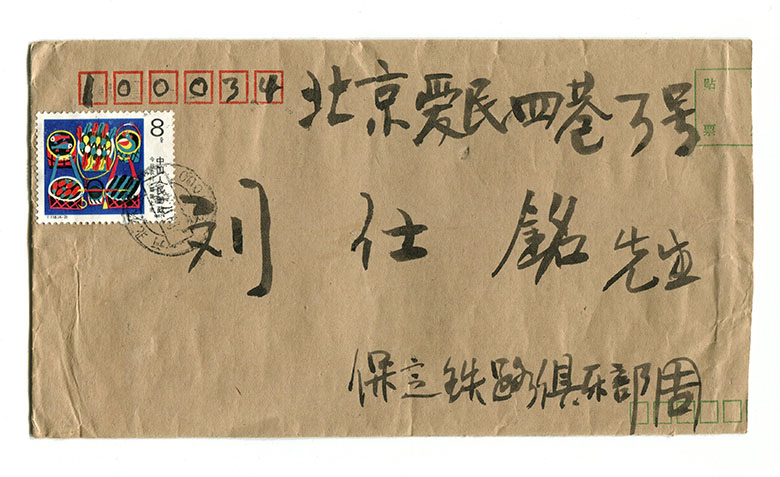 100034
北京爱民四巷3号
贴
票
8
中国人民邮政
刘仕銘先生
保定铁路俱乐部周